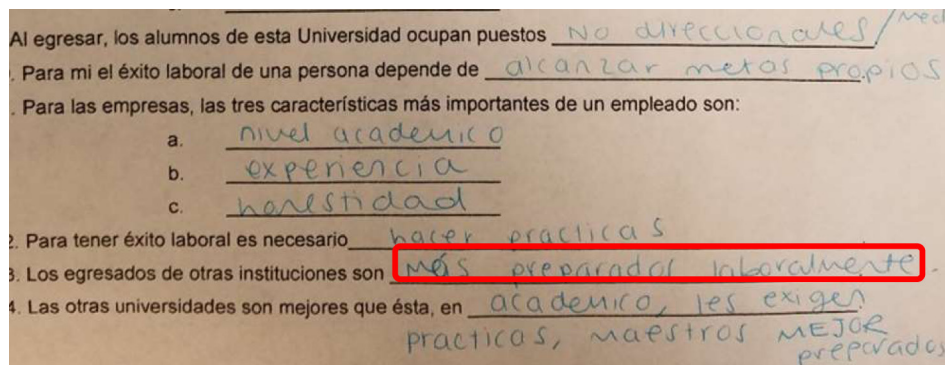 Al egresar, los alumnos de esta Universidad ocupan puestos No direccionales/Med
. Para mi el éxito laboral de una persona depende de alcanzar metas propios
. Para las empresas, las tres características más importantes de un empleado son:
a. nivel academico
b. experiencia
c. honestidad
2. Para tener éxito laboral es necesario hacer practicas
3. Los egresados de otras instituciones son más preparados laboralmente.
4. Las otras universidades son mejores que ésta, en academico, les exigen
practicas, maestros MEJOR
preparados